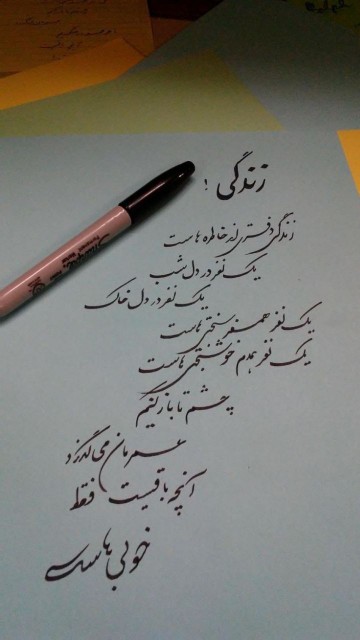 زندگی !
زندگی دفتری از خاطره هاست
یک نفر در دل شب
یک نفر در دل خاک
یک نفر همسفر سختی هاست
یک نفر همدم خوشبختی هاست
چشم تا باز کنیم
عمرمان می گذرد
آنچه باقیست فقط
خوبی هاست
Sharpie